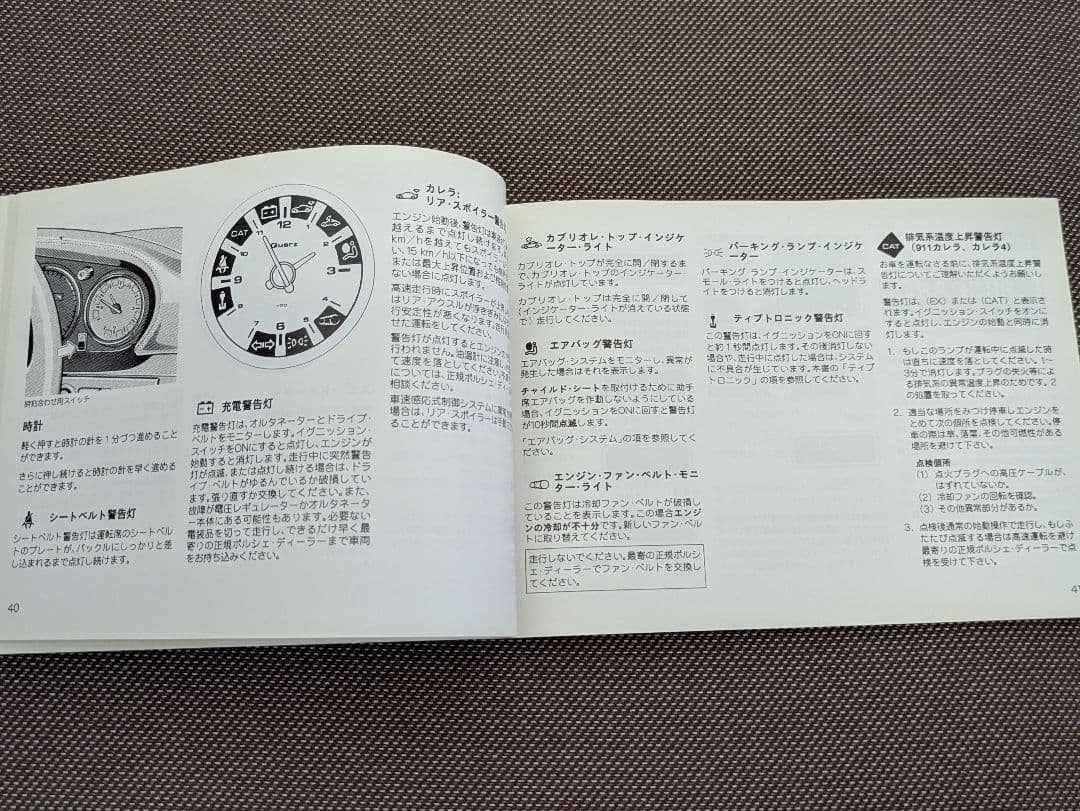 時刻合わせ用スイッチ
時計
軽く押すと時計の針を1分づつ進めること
ができます。
さらに押し続けると時計の針を早く進める
ことができます。
シートベルト警告灯
シートベルト警告灯は運転席のシートベル
トのプレートが、バックルにしっかりと差
し込まれるまで点灯し続けます。
40
CAT
11
12
1
2
3
6
8
9
Quarz
充電警告灯
充電警告灯は、オルタネーターとドライブ・
ベルトをモニターします。イグニッション・
スイッチをONにすると点灯し、エンジンが
始動すると消灯します。走行中に突然警告
灯が点滅、または点灯し続ける場合は、ドラ
イブ・ベルトがゆるんでいるか破損してい
ます。張り直すか交換してください。また、
故障が電圧レギュレーターかオルタネータ
ー本体にある可能性もあります。必要ない
電装品を切って走行し、できるだけ早く最
寄りの正規ポルシェ・ディーラーまで車両
をお持ち込みください。
カレラ:
リア・スポイラー警告
エンジン始動後、警告灯は車速が
越えるまで点灯し続けます。
km/hを越えてもスポイラー
い、15 km/h以下になっても
または最大上昇位置および格納
ない場合に点灯します。
高速走行時にスポイラーが上昇
はリア・アクスルが浮き
行安定性が悪くなります。
せた運転をしてください。
警告灯が点灯するとエンジンの
行われません。油温計に注意し
て速度を落としてください。
については、正規ポルシェ・ディ
相談ください。
車速感応式制御システムに異常
場合は、リア・スポイラーは手動
ることができます。
カブリオレ・トップ・インジケ
ーター・ライト
カブリオレ・トップが完全に開/閉するま
で、カブリオレ・トップのインジケーター・
ライトが点灯しています。
カブリオレ・トップは完全に開/閉して
(インジケーター・ライトが消えている状態
で)走行してください。
エアバッグ警告灯
エアバッグ・システムをモニターし、異常が
発生した場合はそれを表示します。
チャイルド・シートを取付けるために助手
席エアバッグを作動しないようにしている
場合、イグニッションをONに回すと警告灯
が10秒間点滅します。
「エアバッグ・システム」の項を参照してく
ださい。
エンジン・ファン・ベルト・モニ
ター・ライト
この警告灯は冷却ファン・ベルトが破損し
ていることを表示します。この場合エンジ
ンの冷却が不十分です。新しいファン・ベル
トに取り替えてください。
走行しないでください。最寄の正規ポルシ
ェ・ディーラーでファン・ベルトを交換し
てください。
パーキング・ランプ・インジケ
ーター
パーキング・ランプ・インジケーターは、ス
モール・ライトをつけると点灯し、ヘッドラ
イトをつけると消灯します。
ティプトロニック警告灯
この警告灯は、イグニッションをONに回す
と約1秒間点灯します。その後消灯しない
場合や、走行中に点灯した場合は、システム
に不具合が生じています。本書の「ティプ
トロニック」の項を参照してください。
CAT
排気系温度上昇警告灯
(911カレラ、カレラ4)
お車を運転なさる前に、排気系温度上昇警
告灯についてご理解いただくようお願いし
ます。
警告灯は、(EX)または(CAT)と表示さ
れます。イグニッション・スイッチをオンに
すると点灯し、エンジンの始動と同時に消
灯します。
1. もしこのランプが運転中に点滅した時
は直ちに速度を落としてください。1〜
3分で消灯します。プラグの失火等によ
る排気系の異常温度上昇のためです。2
の処置を取ってください。
2. 適当な場所をみつけ停車しエンジンを
とめて次の個所を点検してください。停
車の際は草、落葉、その他可燃性がある
場所を避けて下さい。
点検個所
(1) 点火プラグへの高圧ケーブルが、
はずれていないか。
(2) 冷却ファンの回転を確認。
(3) その他異常部分があるか。
3. 点検後通常の始動操作で走行し、もしふ
たたび点滅する場合は高速運転を避け
最寄りの正規ポルシェ・ディーラーで点
検を受けて下さい。